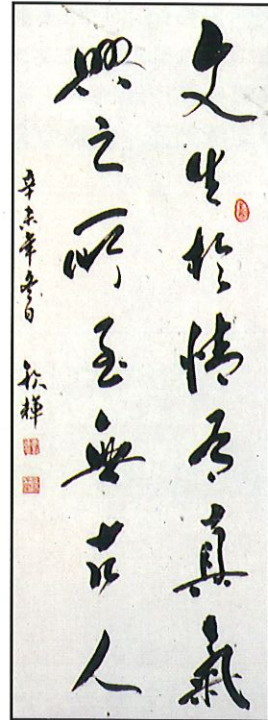 文生於情有真氣
興之所至無古人
辛未年冬日 秋輝